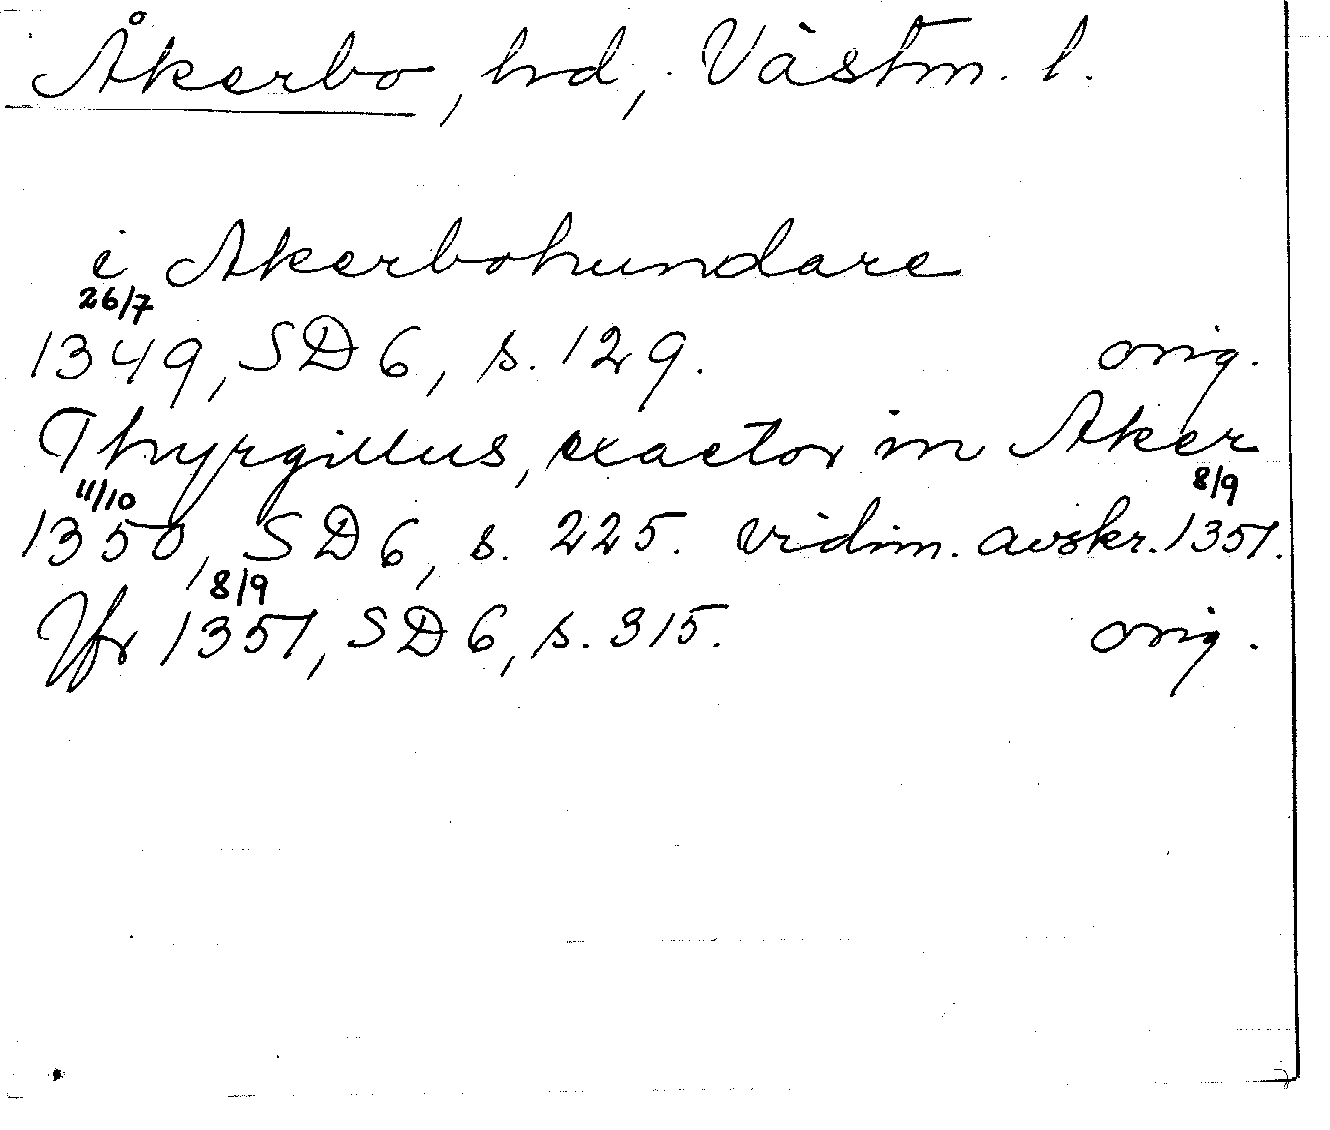 Åkerbo, hd, Västm. l.
i Akerbohundare
26/7
1349, SD 6, s. 129. orig.
Thyrgillus, exactor in Aker
11/10 8/9
1350, SD 6, s. 225. vidim. avskr. 1351.
8/9
Jfr 1351, SD 6, s. 315. orig.